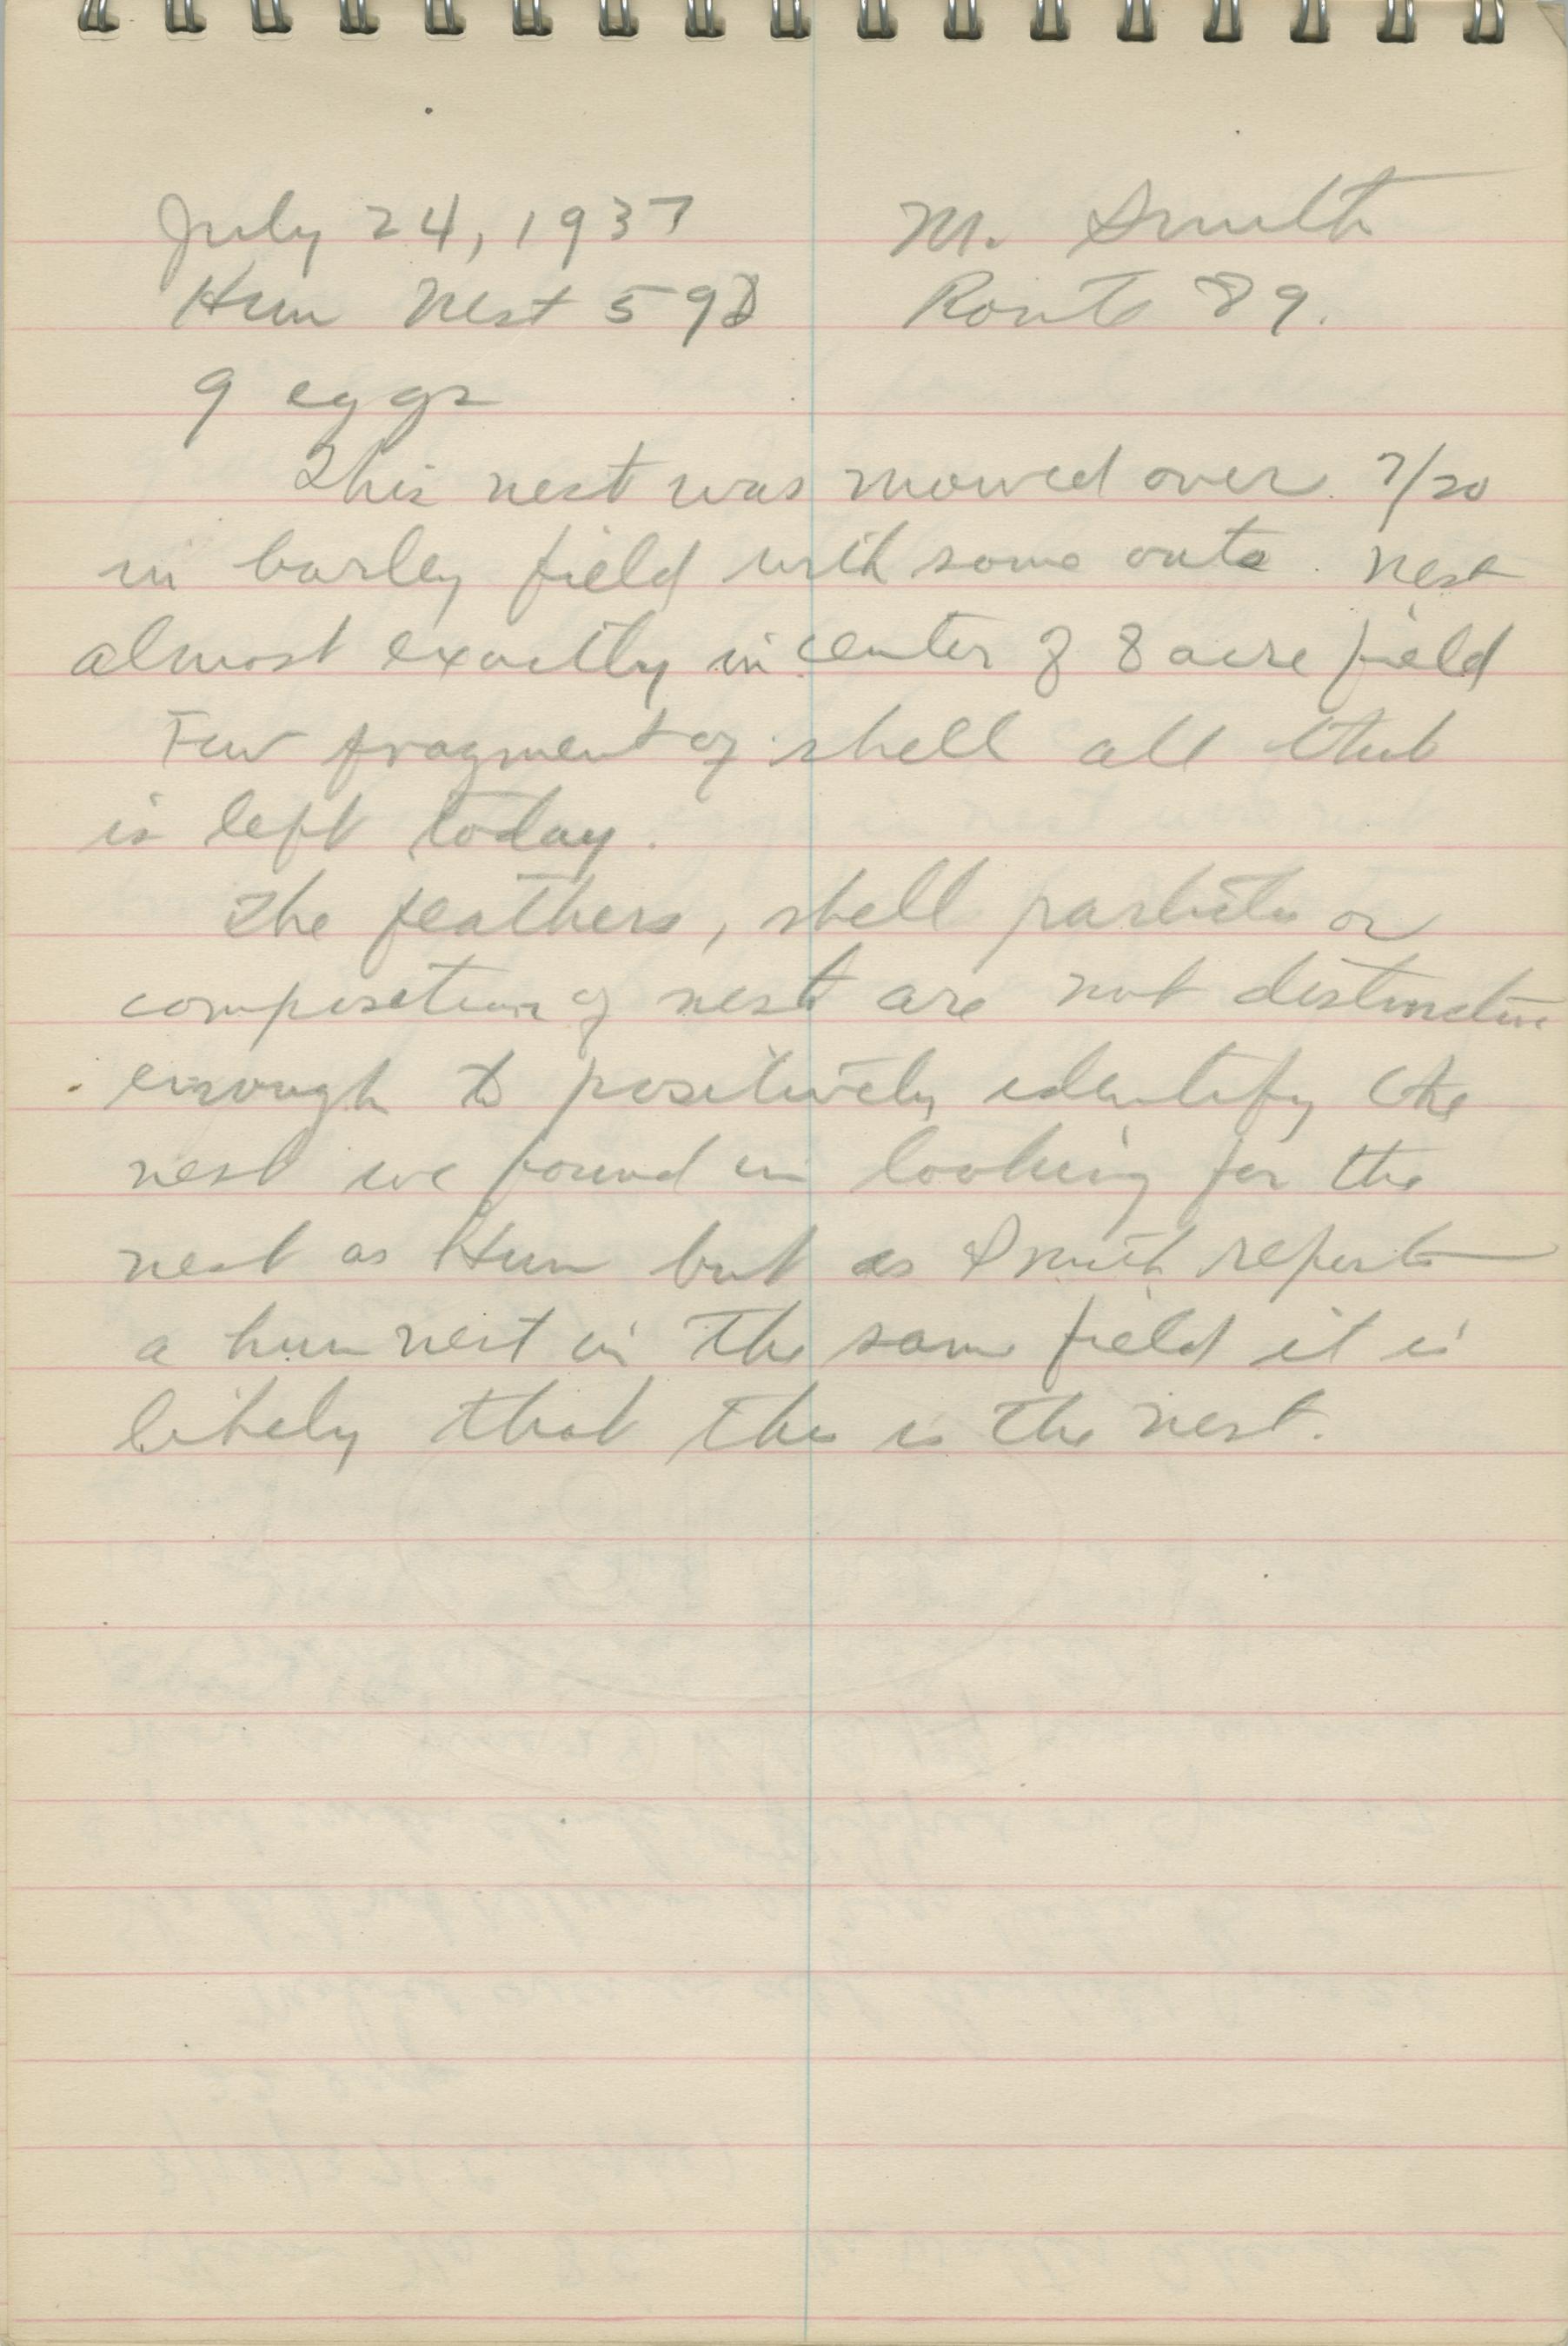 July 24, 1937 M. Smith
Hun Nest 598 Route 89.
9 eggs
This nest was mowed over 7/20
in barley field with some oats. Nest
almost exactly in center of 8 acre field
Few fragment of shell all that
is left today.
The feathers, shell particles or
composition of nest are not distinctive
enough to positively identify the
nest we found in looking for the
nest as Hun but as Smith reports
a hun nest in the same field it is
likely that this is the nest.